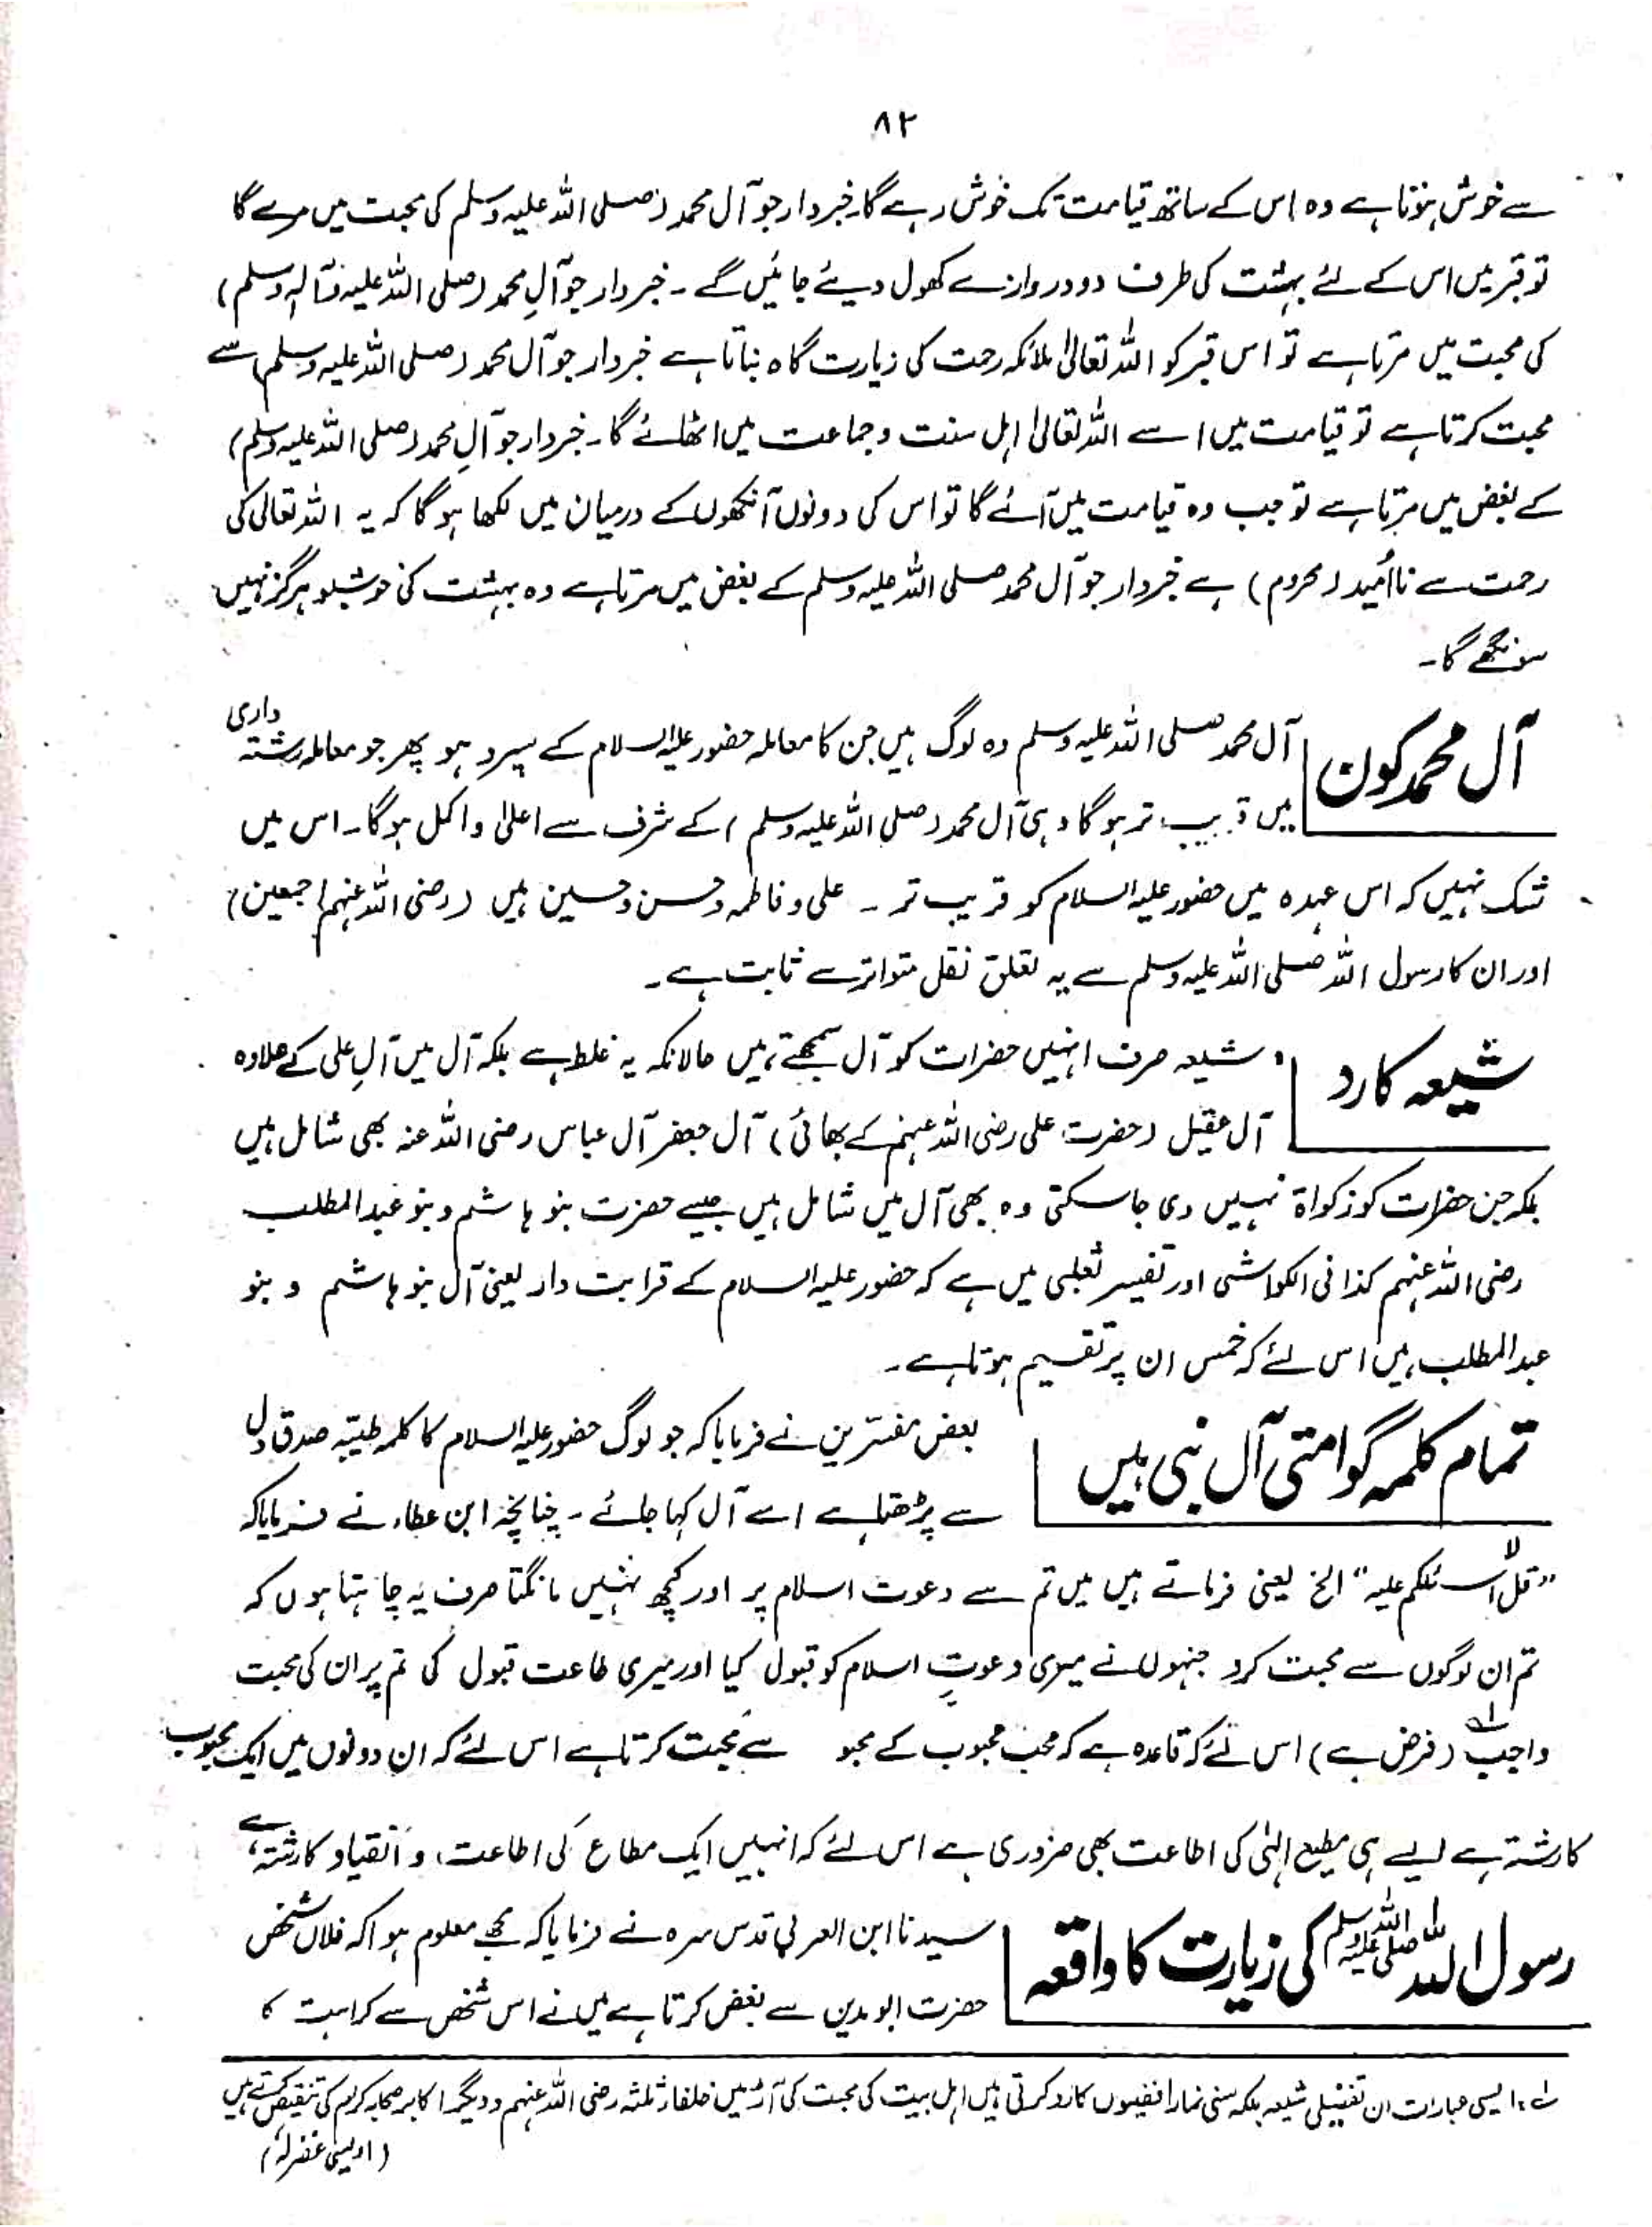 ۸۲
سے خوش ہوتا ہے وہ اس کے ساتھ قیامت تک خوش رہے گا۔ خبردار جو آل محمد (صلی اللہ علیہ وسلم کی محبت میں مرے گا
تو قبر میں اس کے لئے بہشت کی طرف دو دروازے کھول دیئے جائیں گے ۔ خبردار جو آلِ محمد (صلی اللہ علیہ وآلہٖ وسلم)
کی محبت میں مرتا ہے تو اس قبر کو اللہ تعالیٰ ملائکہ رحمت کی زیارت گاہ بناتا ہے خبردار جو آل محمد (صلی اللہ علیہ وسلم) سے
محبت کرتا ہے تو قیامت میں اسے اللہ تعالیٰ اہل سنت و جماعت میں اٹھائے گا ۔ خبردار جو آلِ محمد (صلی اللہ علیہ وسلم)
کے بغض میں مرتا ہے تو جب وہ قیامت میں آئے گا تو اس کی دونوں آنکھوں کے درمیان میں لکھا ہوگا کہ یہ اللہ تعالیٰ کی
رحمت سے ناامُید (محروم) ہے خبردار جو آل محمد صلی اللہ علیہ وسلم کے بغض میں مرتا ہے وہ بہشت کی خوشبو ہرگز نہیں
سونگھے گا۔
آل محمد کون
آل محمد صلی اللہ علیہ وسلم وہ لوگ ہیں جن کا معاملہ حضور علیہ السلام کے سپرد ہو پھر جو معاملہ رشتہ داری
میں قریب تر ہوگا وہی آل محمد (صلی اللہ علیہ وسلم) کے شرف سے اعلیٰ و اکمل ہوگا۔ اس میں
شک نہیں کہ اس عہدہ میں حضور علیہ السلام کو قریب تر ۔ علی و فاطمہ و حسن و حسین ہیں (رضی اللہ عنہم اجمعین)
اور ان کا رسول اللہ صلی اللہ علیہ وسلم سے یہ تعلق نقل متواتر سے ثابت ہے ۔
شیعہ کا رد
شیعہ صرف انہیں حضرات کو آل سمجھتے ہیں حالانکہ یہ غلط ہے بلکہ آل میں آلِ علی کے علاوہ
آل عقیل (حضرت علی رضی اللہ عنہم کے بھائی) آل جعفر آل عباس رضی اللہ عنہ بھی شامل ہیں
بلکہ جن حضرات کو زکواۃ نہیں دی جاسکتی وہ بھی آل میں شامل ہیں جیسے حضرت بنو ہاشم و بنو عبدالمطلب
رضی اللہ عنہم کذا فی الکواشی اور تفسیر ثعلبی میں ہے کہ حضور علیہ السلام کے قرابت دار یعنی آل بنو ہاشم و بنو
عبدالمطلب ہیں اس لئے کہ خمس ان پر تقسیم ہوتا ہے ۔
تمام کلمہ گو امتی آل نبی ہیں
بعض مفسّرین نے فرمایا کہ جو لوگ حضور علیہ السلام کا کلمہ طیبّہ صدق دل
سے پڑھتا ہے اسے آل کہا جائے ۔ چنانچہ ابن عطاء نے فرمایا کہ
"قل لا اسئلکم علیہ" الخ یعنی فرماتے ہیں میں تم سے دعوت اسلام پر اور کچھ نہیں مانگتا صرف یہ چاہتا ہوں کہ
تم ان لوگوں سے محبت کرو جنہوں نے میری دعوتِ اسلام کو قبول کیا اور میری طاعت قبول کی تم پر ان کی محبت
واجب (فرض ہے) اس لئے کہ قاعدہ ہے کہ محب محبوب کے محبو سے محبت کرتا ہے اس لئے کہ ان دونوں میں ایک محبوب
کا رشتہ ہے ایسے ہی مطیع الہٰی کی اطاعت بھی ضروری ہے اس لئے کہ انہیں ایک مطاع کی اطاعت و انقیاد کا رشتہ ہے
رسول اللہ صلی اللہ علیہ وسلم کی زیارت کا واقعہ
سیدنا ابن العربی قدس سرہ نے فرمایا کہ مجھے معلوم ہوا کہ فلاں شخص
حضرت ابو مدین سے بغض کرتا ہے میں نے اس شخص سے کراہت کا
لے: ایسی عبارات ان تفضیلی شیعہ بلکہ سنی نما رافضیوں کا رد کرتی ہیں اہل بیت کی محبت کی آڑ میں خلفاء ثلٰثہ رضی اللہ عنہم و دیگر اکابر صحابہ کرام کی تنقیص کرتے ہیں
(اویسی غفرلہٗ)